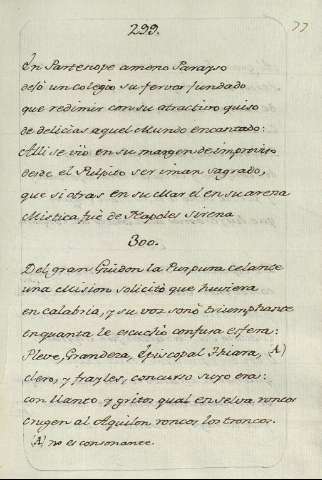 299.
77
En Partenope ameno Parayso
dejó un colegio su fervor fundado
que redimir con su atractivo quiso
de delicias aquel Mundo encantado:
Alli se vió en su margen de improviso
desde el Pulpito ser iman sagrado,
que si otras en su Mar el en su arena
Mistica fue de Napoles Sirena
300.
Del gran Guidon la Purpura celante
una Mision solicitó que huviera
en calabria, y su voz sonó triumphante
en quanta le escuchó confusa esfera:
Pleve, Grandeza, Episcopal Thiara, (A)
clero, y frayles, concurso suyo era:
con llanto y gritos qual en selva roncos
crugen al Aquilon roncos los troncos.
(A) no es consonante.